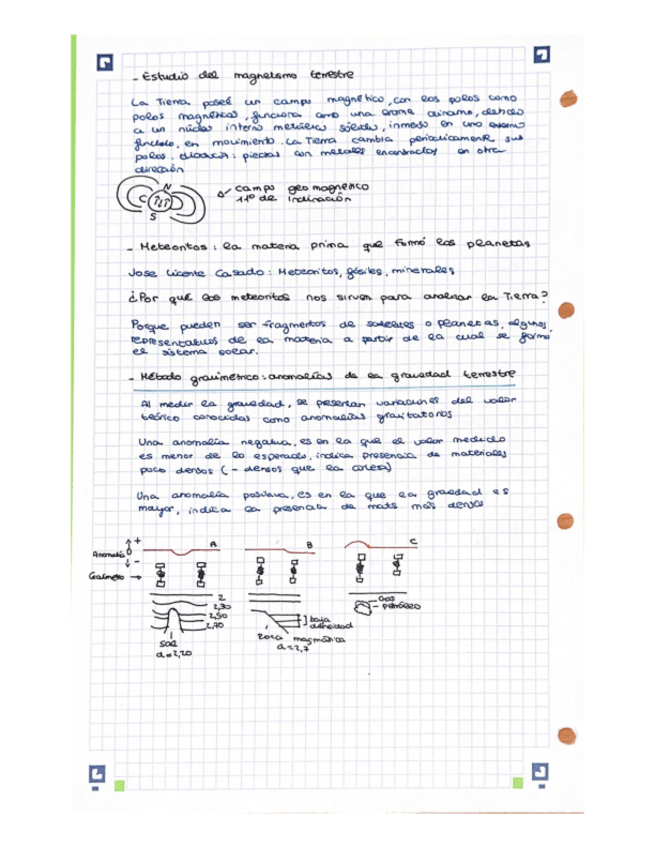 - Estudio del magnetismo terrestre
La Tierra poseé un campo magnético, con los polos como
polos magnéticos, funciona como una enorme dinamo, debido
a un núcleo interno metálico sólido, inmerso en uno externo
fundido, en movimiento. La Tierra cambia periódicamente sus
polos: piezas con metales encontrados en otra
dirección
N
C
S
campo geomagnético
11º de Inclinación
- Meteoritos: la materia prima que formó los planetas
Jose Vicente Casado: Meteoritos, fósiles, minerales
¿Por qué los meteoritos nos sirven para analizar la Tierra?
Porque pueden ser fragmentos de satélites o planetas, algunos
representativos de la materia a partir de la cual se formó
el sistema solar.
- Método gravimétrico: anomalías de la gravedad terrestre
Al medir la gravedad, se presentan variaciones del valor
teórico conocidas como anomalías gravitatorias
Una anomalía negativa, es en la que el valor medido
es menor de lo esperado, indica presencia de materiales
poco densos (- densos que la corteza)
Una anomalía positiva, es en la que la gravedad es
mayor, indica la presencia de mats más densos
+ A B C
Anomalía 0
-
Gravímetro →
2
2,30
2,50
2,70
sal
d=2,20
baja
densidad
roca magmática
d=2,7
Gas
petróleo